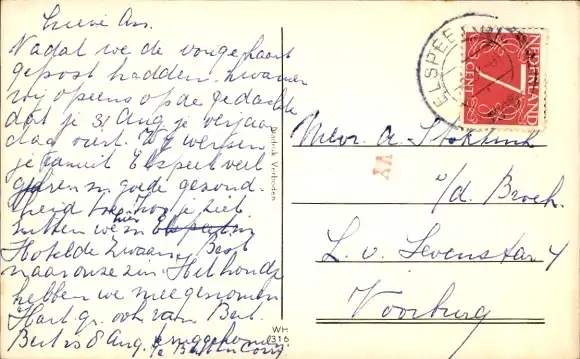 Lieve An.
Nadat we de vorige kaart
gepost hadden kwamen
wij opeens op de gedachte
dat je 31 Aug je verjaar
dag viert. Wij wensen
je vanuit Elspeet veel
geluk en goede gezond-
heid toe. Zoals je ziet
zitten we hier in
Hotel de Zwaan. Best
naar onze zin. Het hondje
hebben we meegenomen
Hart. gr. ook van Bert.
Bert is 8 Aug. teruggekomen
Nadruk Verboden
WH
1316
ELSPEET
NEDERLAND
7
CENT
Mevr. A. Stokkink
AA
v/d. Broek.
L. v. Levenstar 4
Voorburg